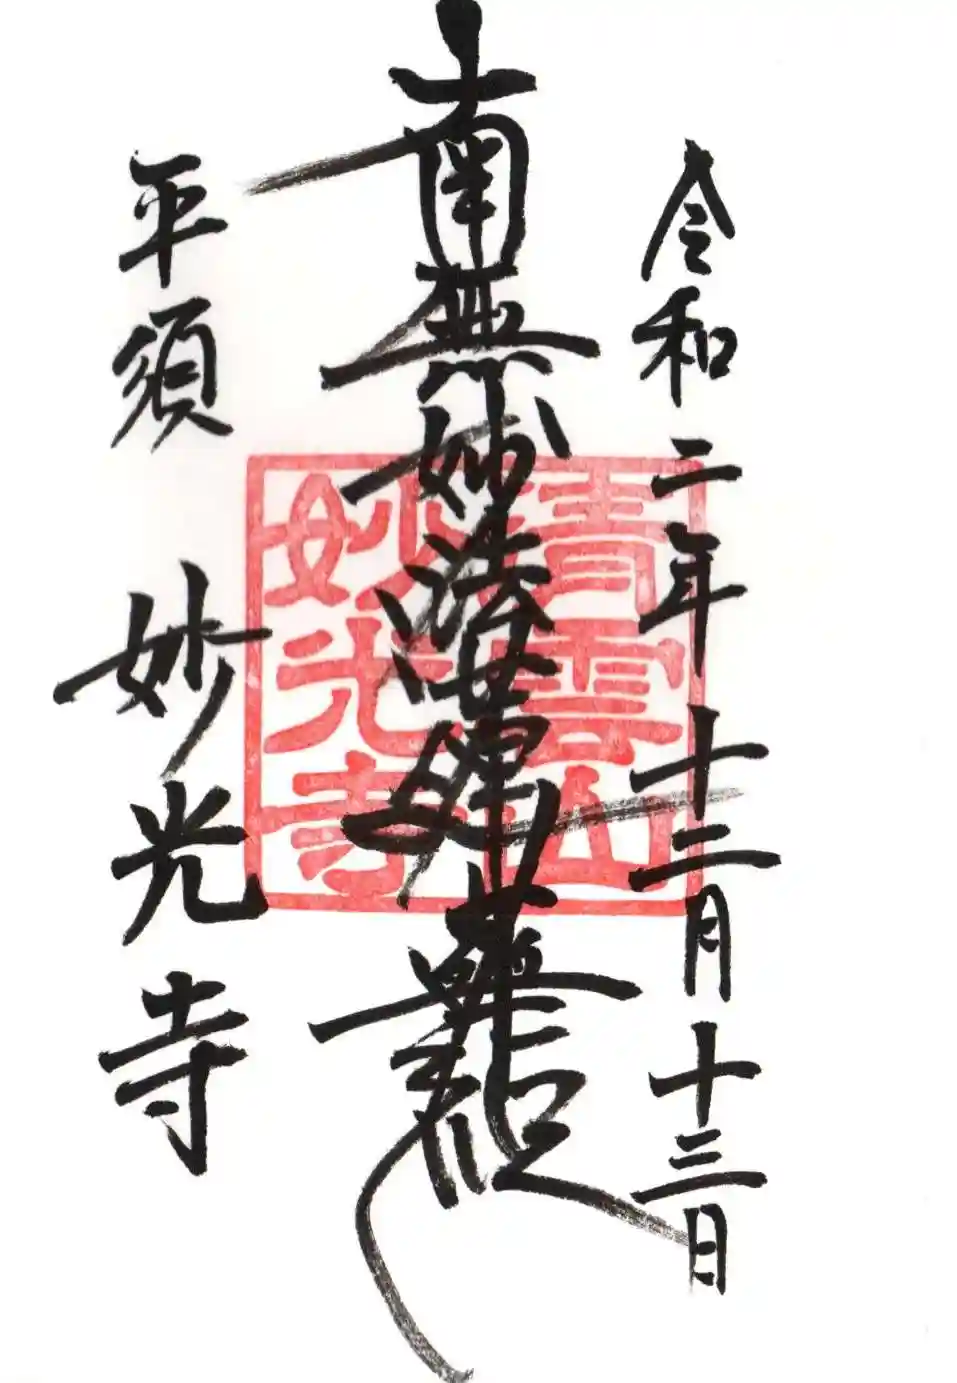 令和二年十二月十三日
南無妙法蓮華経
平須 妙光寺
青雲山
妙光寺